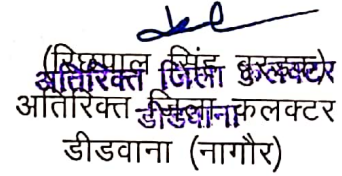 (रिछपाल सिंह बुरड़क)
अतिरिक्त जिला कलक्टर
डीडवाना
अतिरिक्त जिला कलक्टर
डीडवाना (नागौर)